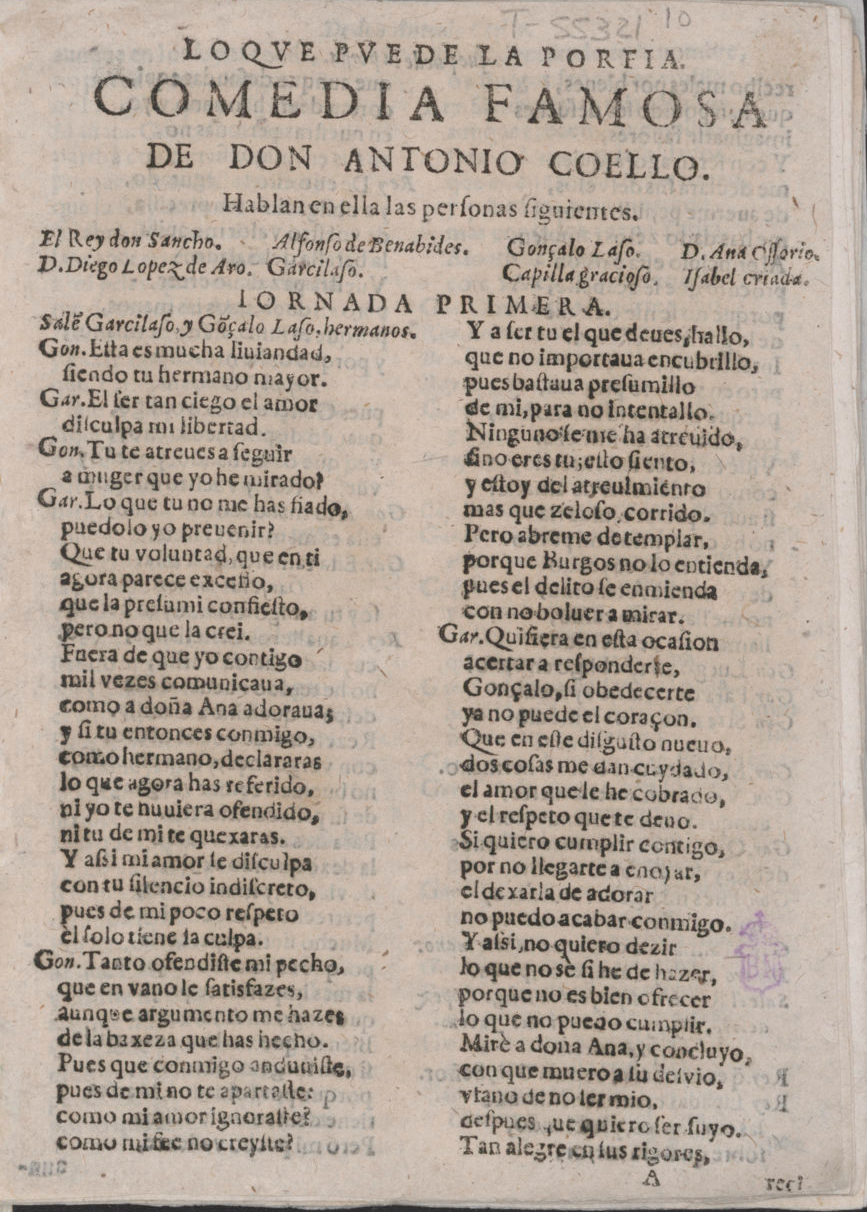 T-55321 10
LO QVE PVEDE LA PORFIA.
COMEDIA FAMOSA
DE DON ANTONIO COELLO.
Hablan en ella las perſonas ſiguientes.
El Rey don Sancho. Alfonſo de Benabides. Gonçalo Laſo. D. Ana Oſſorio.
D. Diego Lopez de Aro. Garcilaſo. Capilla gracioſo. Iſabel criada.
IORNADA PRIMERA.
Salẽ Garcilaſo, y Gõçalo Laſo, hermanos.
Gon. Eſta es mucha liuiandad,
ſiendo tu hermano mayor.
Gar. El ſer tan ciego el amor
diſculpa mi libertad.
Gon. Tu te atreues a ſeguir
a muger que yo he mirado?
Gar. Lo que tu no me has fiado,
puedolo yo preuenir?
Que tu voluntad, que en ti
agora parece exceſſo,
que la preſumi confieſto,
pero no que la crei.
Fuera de que yo contigo
mil vezes comunicaua,
como a doña Ana adoraua;
y ſi tu entonces conmigo,
como hermano, declararas
lo que agora has referido,
ni yo te huuiera ofendido,
ni tu de mi te quexaras.
Y aſsi mi amor ſe diſculpa
con tu ſilencio indiſcreto,
pues de mi poco reſpeto
el ſolo tiene la culpa.
Gon. Tanto ofendiſte mi pecho,
que en vano le ſatisfazes,
aunque argumento me hazes
de la baxeza que has hecho.
Pues que conmigo anduuiſte,
pues de mi no te apartaſte:
como mi amor ignoraſte?
como mi fee no creyſte?
Y a ſer tu el que deues, hallo,
que no importaua encubrillo,
pues baſtaua preſumillo
de mi, para no intentallo.
Ninguno ſe me ha atreuido,
ſino eres tu; eſto ſiento,
y eſtoy del atreuimiento
mas que zeloſo, corrido.
Pero abreme de templar,
porque Burgos no lo entienda,
pues el delito ſe enmienda
con no boluer a mirar.
Gar. Quiſiera en eſta ocaſion
acertar a reſponderte,
Gonçalo, ſi obedecerte
ya no puede el coraçon.
Que en eſte diſguſto nueuo,
dos coſas me dan cuydado,
el amor que le he cobrado,
y el reſpeto que te deuo.
Si quiero cumplir contigo,
por no llegarte a enojar,
el dexarla de adorar
no puedo acabar conmigo.
Y aſsi, no quiero dezir
lo que no sè ſi he de hazer,
porque no es bien ofrecer
lo que no puedo cumplir.
Mirè a doña Ana, y concluyo,
con que muero a ſu deſvio,
vfano de no ſer mio,
deſpues que quiero ſer ſuyo.
Tan alegre en ſus rigores,
A
reci